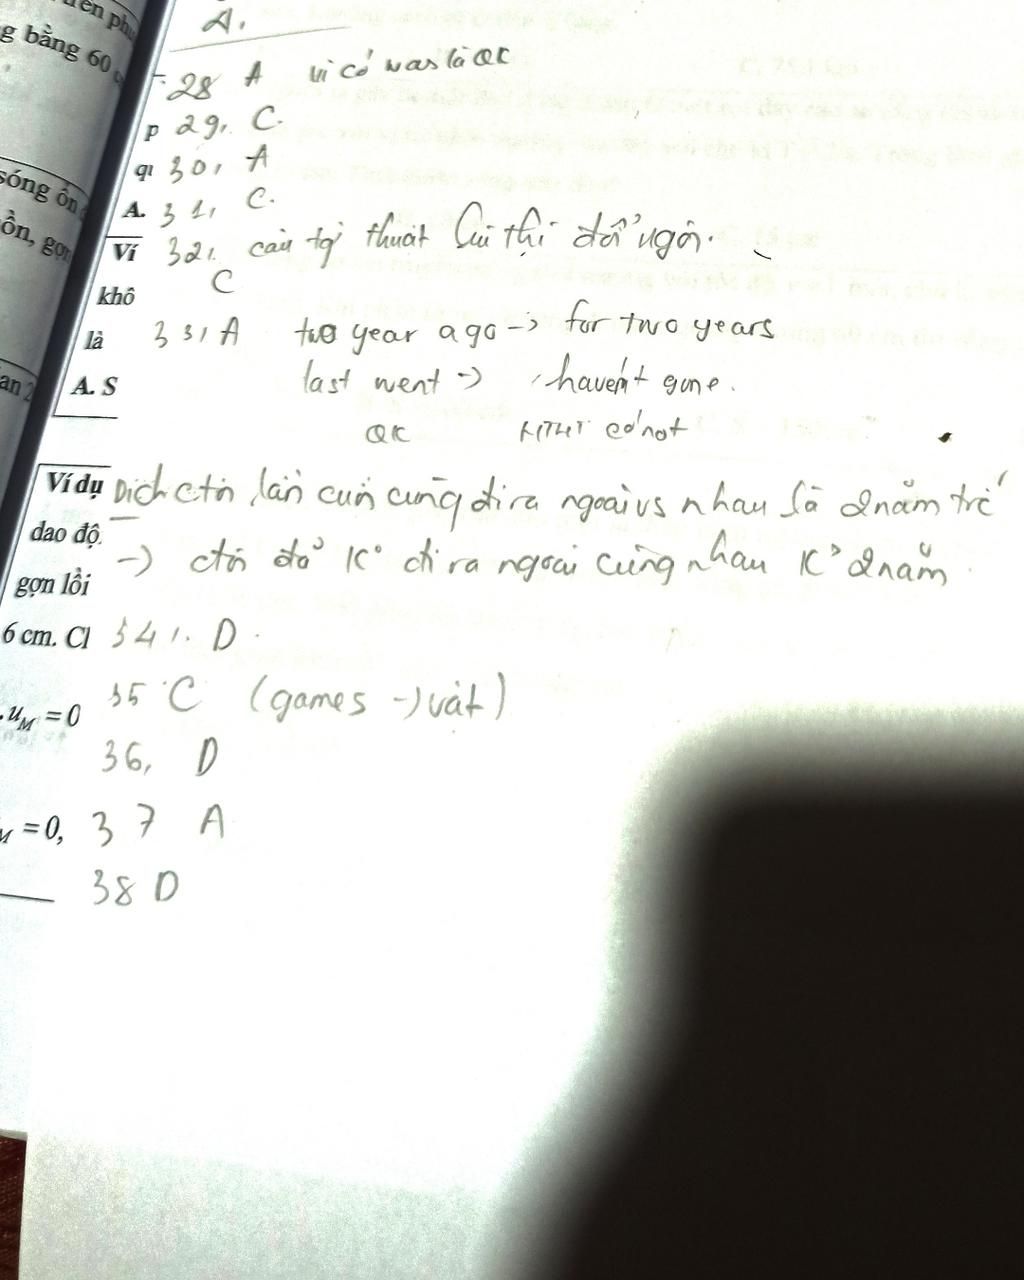 A.
g bằng 60
28 A vì có was là QK
p 29, C.
qu 30, A
sóng ổn
A. 31, C.
ồn, gợn
Ví 32, câu tg thuật lùi thì đổi ngôi.
C
khô
là 33, A two year ago -> for two years
A. S last went -> haven't gone.
QK HTHT có not
Ví dụ Dịch ctôi lần cuối cùng đi ra ngoài vs nhau là 2 năm trc
dao độ
-> ctôi đã k° đi ra ngoài cùng nhau k° 2 năm
gợn lồi
6 cm. Cl 34, D.
35 C (games -> vật)
u_M = 0
36, D
= 0, 37 A
38 D